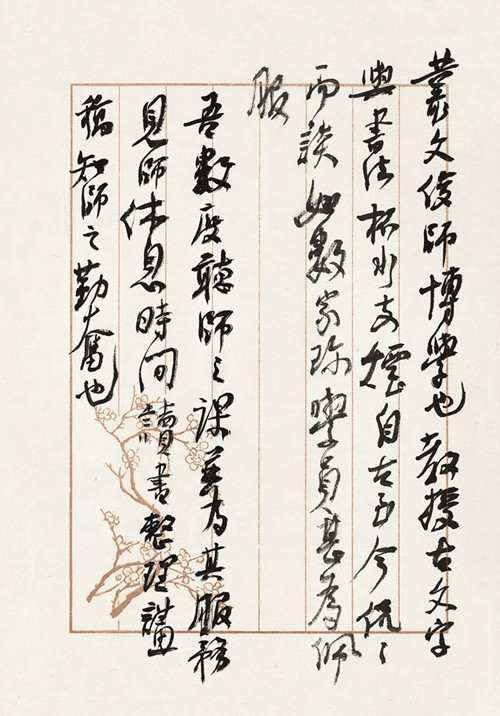 丛文俊師博學也教授古文字
與書法杯水支煙自古至今侃々
而談如數家珍學員甚爲佩
服
吾數度聽師之課并爲其服務
見師休息時间讀書整理講
稿知師之勤奮也